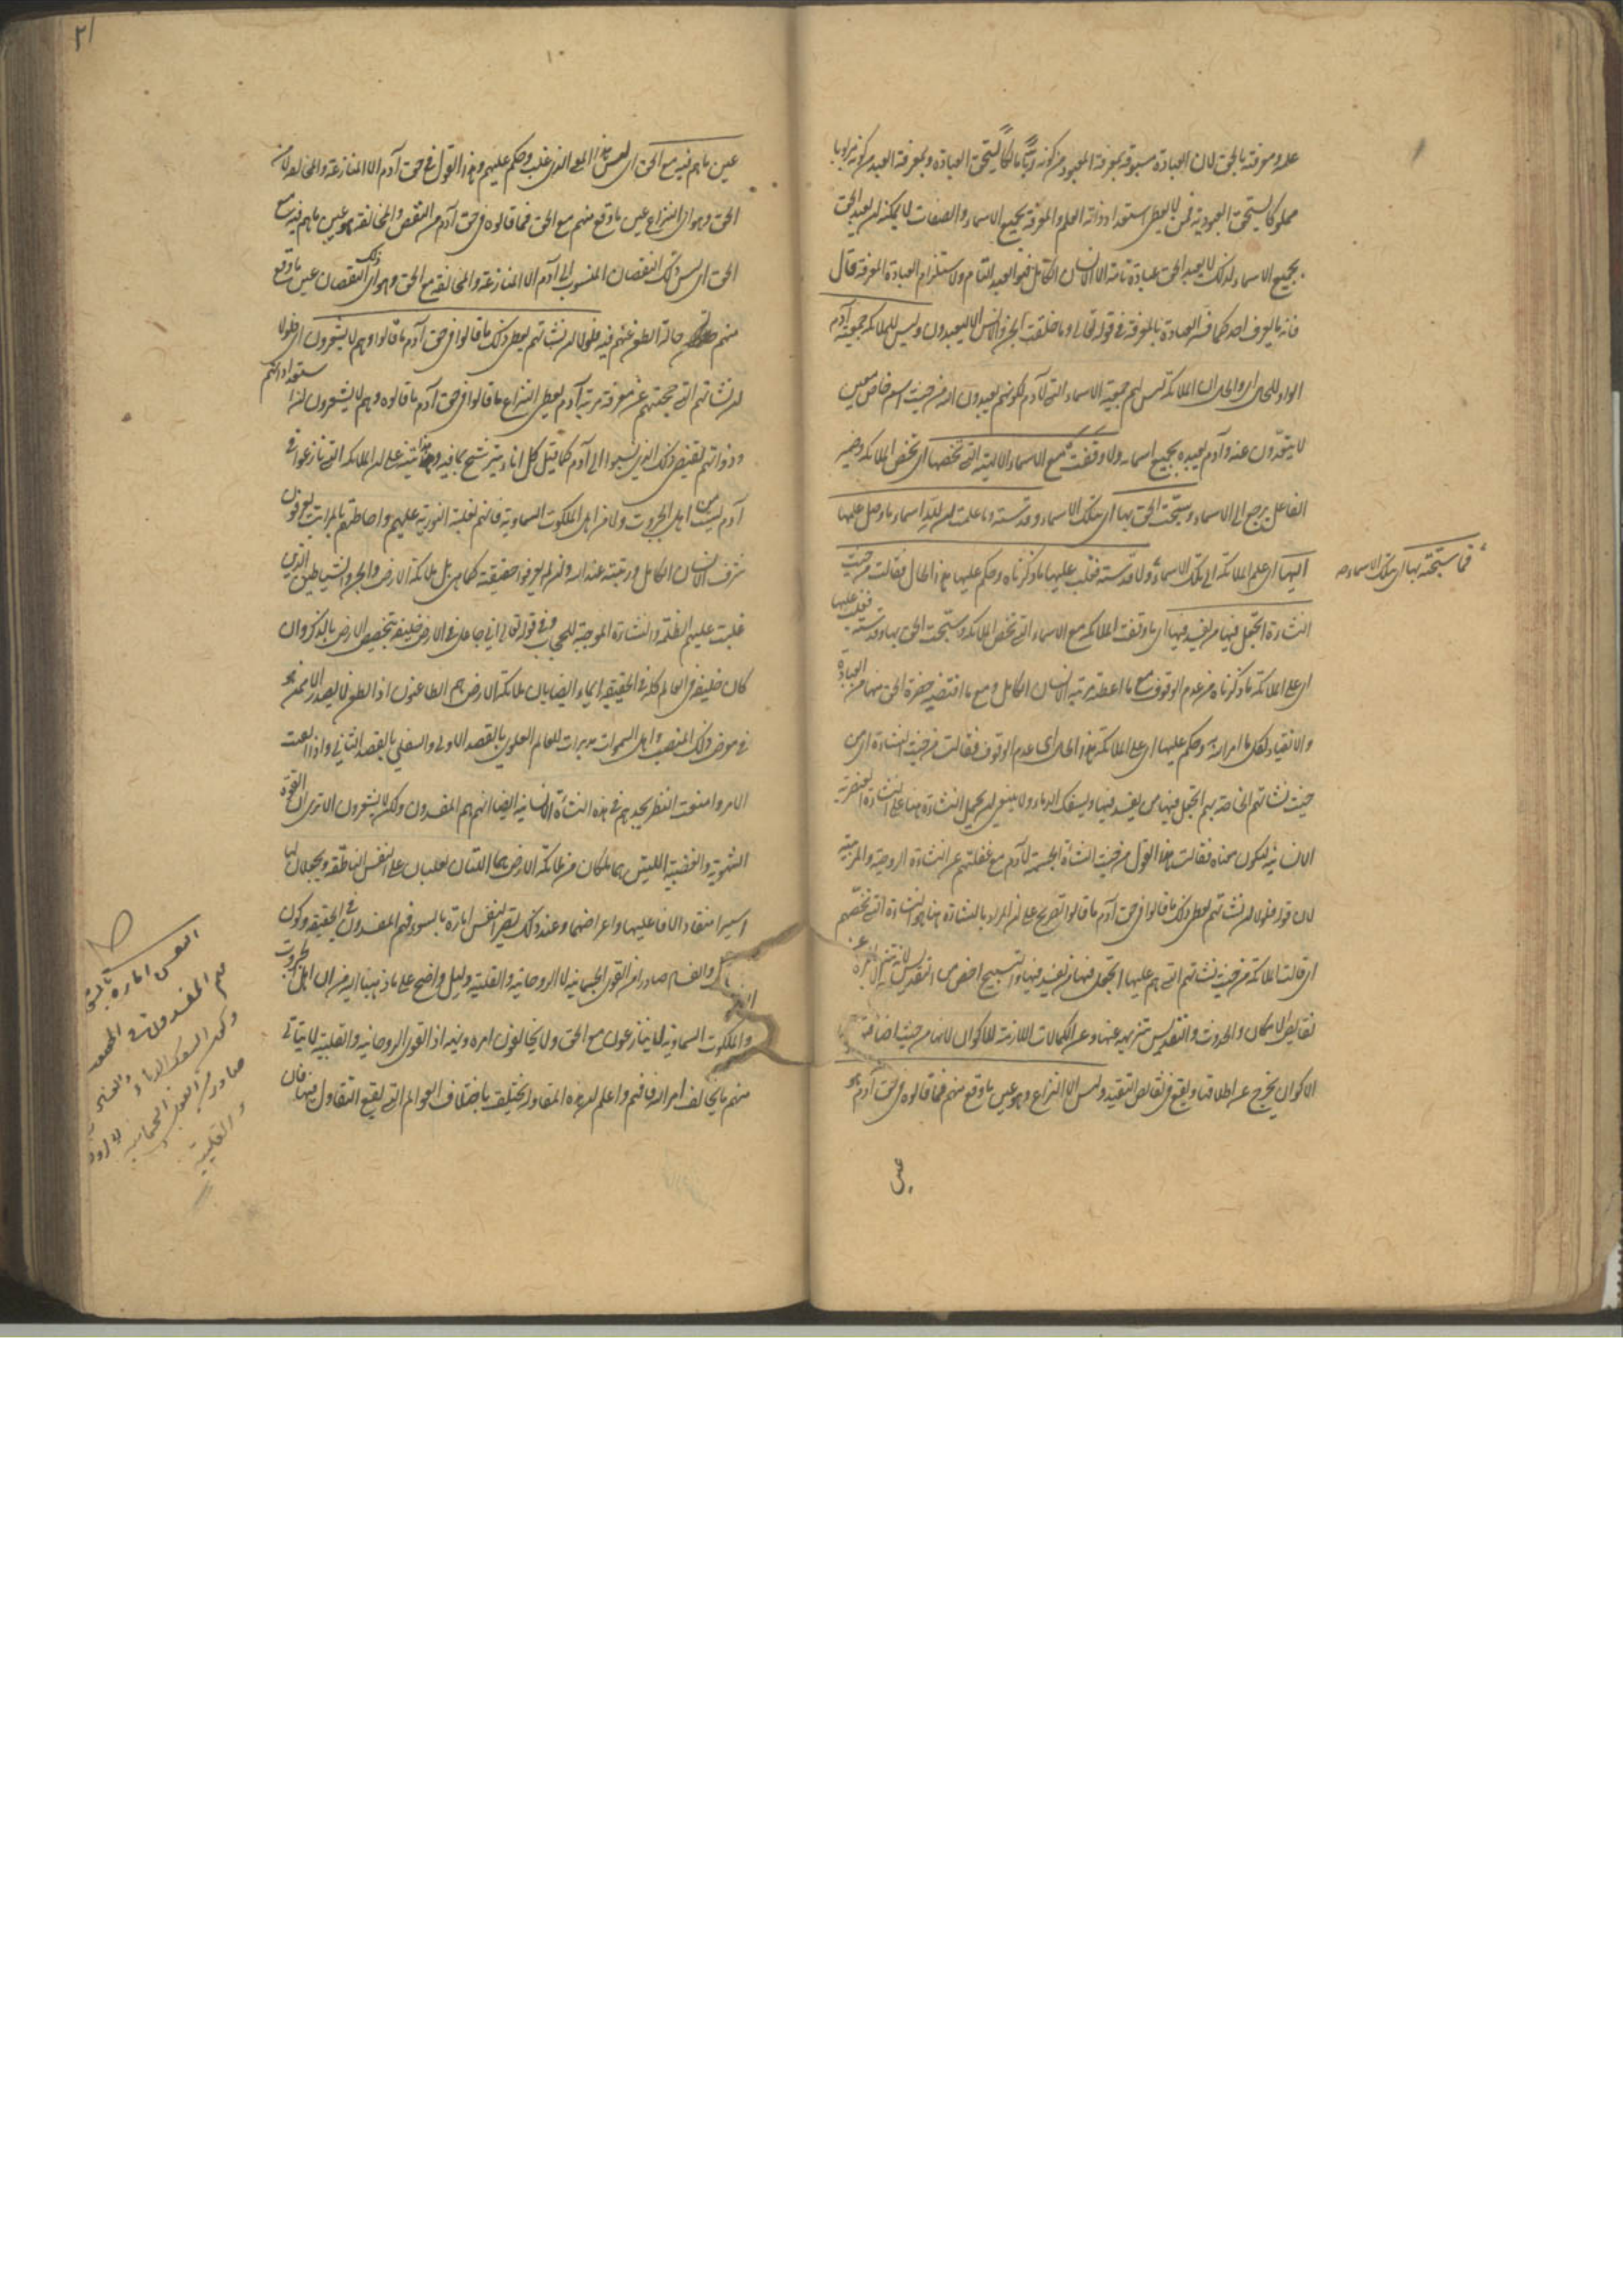 علمه ومعرفته بالحق لان العبادة مسبوقة بمعرفة المعبود من كونه ربا مالكا يستحق العبادة وبمعرفة العبد من كونه مربوبا
مملوكا يستحق العبودية فمن لا يعطى استعداد ذاته العلم والمعرفة بجميع الاسماء والصفات لا يمكنه ان يعبد الحق
بجميع الاسماء لذلك لا يعبد الحق عبادة تامة الا الانسان الكامل فهو العبد التام ولاستلزام العبادة المعرفة قال
فانه ما يعرف احد كما فسر العبادة بالمعرفة في قوله تعالى وما خلقت الجن والانس الا ليعبدون وليس للملائكة جمعية آدم
الواو للحال اي والحال ان الملائكة ليس لهم جمعية الاسماء التي لآدم لكونهم يعبدون الله من حيث اسم خاص معين
لا يتعدون عنه وآدم يعبده بجميع اسمائه ولا وقفت مع الاسماء الالهية التي تخصها اي تخص الملائكة وضمير
الفاعل يرجع الى الاسماء وسبحت الحق بها اي بتلك الاسماء وقدسته وما علمت ان لله اسماء ما وصل علمها
اليها اي علم الملائكة الى تلك الاسماء ولا قدسته فغلب عليها ما ذكرناه وحكم عليها هذا الحال فقالت من حيث
فما سبحته بها اي بتلك الاسماء
النشاءة اتجعل فيها من يفسد فيها اي ما وقفت الملائكة مع الاسماء التي تخص الملائكة وسبحت الحق بها وقدسته فغلب عليها
اي على الملائكة ما ذكرناه من عدم الوقوف مع ما اعطته مرتبة الانسان الكامل ومع ما اقتضيه حضرة الحق منها من العبادة
والانقياد لكل ما امر الله به وحكم عليها اي على الملائكة هذا الحال اي عدم الوقوف فقالت من حيث النشاءة اي من
حيث نشاتهم الخاصة بهم اتجعل فيها من يفسد فيها ويسفك الدماء ولا ينبغي ان يحمل النشاءة هنا على النشاءة العنصرية
الانسانية ليكون معناه فقالت هذا القول من حيث النشأة الجسمية لآدم مع غفلتهم عن النشاءة الروحية والمرتبية
لان قوله فلولا ان نشاتهم يعطى ذلك ما قالوا في حق آدم ما قالوا تصريح على ان المراد بالنشاءة هنا هو النشاءة التي تخصهم
اي قالت الملائكة من حيث نشاتهم التي هم عليها اتجعل فيها من يفسد فيها والتسبيح اخص من التقديس لانه تنزيه عن
نقائص الامكان والحدوث والتقديس تنزيهه عنها وعن الكمالات اللازمة للاكوان لانها من حيث اضافة
الاكوان يخرج عن اطلاقها ويقع في نقائص التقييد وليس الا النزاع وهو عين ما وقع منهم فما قالوه في حق آدم هو
عين
٢١
١٠
عين ما هم فيه مع الحق اي ليس هذا المعنى الذي غلب وحكم عليهم وهذا القول في حق آدم الا المنازعة والمخالفة لامر
الحق وهو اي النزاع عين ما وقع منهم مع الحق فما قالوه في حق آدم من النقص والمخالفة هو عين ما هم فيه مع
الحق اي ليس ذلك النقصان المنسوب الى آدم الا المنازعة والمخالفة مع الحق وهو اي ذلك النقصان عين ما وقع
منهم حالة الطعن فيه فلولا ان نشاتهم يعطى ذلك ما قالوا في حق آدم ما قالوا وهم لا يشعرون اي فلولا
ان نشاتهم التي حجبتهم عن معرفة مرتبة آدم يعطى النزاع ما قالوا في حق آدم ما قالوه وهم لا يشعرون ان استعداداتهم
وذواتهم يقتضي ذلك الذي نسبوا الى آدم كما قيل كل اناء يترشح بما فيه وهذا تنبيه على ان الملائكة التي نازعوا في
آدم ليست من اهل الجبروت ولا من اهل الملكوت السماوية فانهم لغلبة النورية عليهم واحاطتهم بالمراتب يعرفون
شرف الانسان الكامل ورتبته عند الله وان لم يعرفوا حقيقته كما هي بل ملائكة الارض والجن والشياطين الذين
غلبت عليهم الظلمة والنشاءة الموجبة للحجاب وفي قوله تعالى اني جاعل في الارض خليفة بتخصيص الارض بالذكر وان
كان خليفة في العالم كله في الحقيقة ايماء ايضا بان ملائكة الارض هم الطاعنون اذ الطعن لا يصدر الا ممن هو
في معرض ذلك المنصب واهل السموات مدبرات للعالم العلوي بالقصد الاولى والسفلي بالقصد الثاني واذا امعنت
الامر وامنعت النظر تجدهم في هذه النشأة الانسانية ايضا انهم هم المفسدون ولكن لا يشعرون الا ترى ان القوة
الشهوية والغضبية اللتين هما ملكان من ملائكة الارض هما اللتان تغلبان على النفس الناطقة ويجعلان لها
اسيرا منقادا لافاعيلها واغراضهما وعند ذلك يصير النفس امارة بالسوء فهم المفسدون في الحقيقة وكون
والفساد صادرا من القوى الجسمانية لا الروحانية والقلبية دليل واضح على ما ذهبنا اليه من ان اهل الجبروت
والملكوت السماوية لا ينازعون مع الحق ولا يخالفون امره ونهيه اذ القوى الروحانية والقلبية لا يتاتى
منهم ما يخالف امر الله فافهم واعلم ان هذه المقاولة يختلف باختلاف العوالم التي يقع التقاول فيها فان
النفس امارة بالسوء
هم المفسدون في الحقيقة
وكون السفك الدماء والفساد
صادرا من القوى الجسمانية لا الروحانية
والقلبية